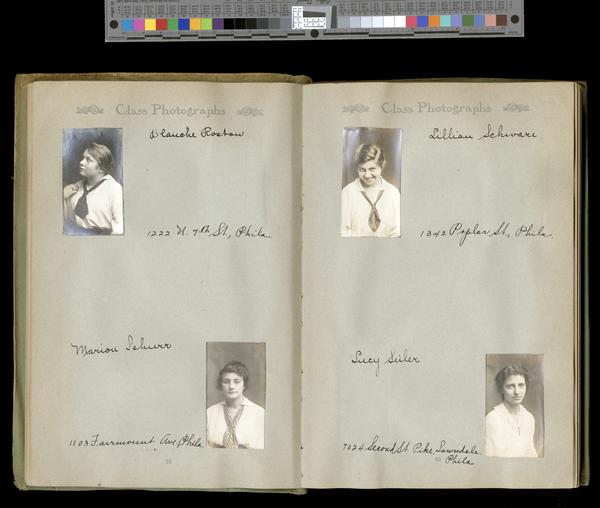 Class Photographs
Blanche Rostow
1222 N. 7th St., Phila.
Marion Schurr
1103 Fairmount Ave, Phila.
Class Photographs
Lillian Schwarz
1342 Poplar St., Phila.
Lucy Seiler
7024 Second St. Pike, Lawndale
Phila